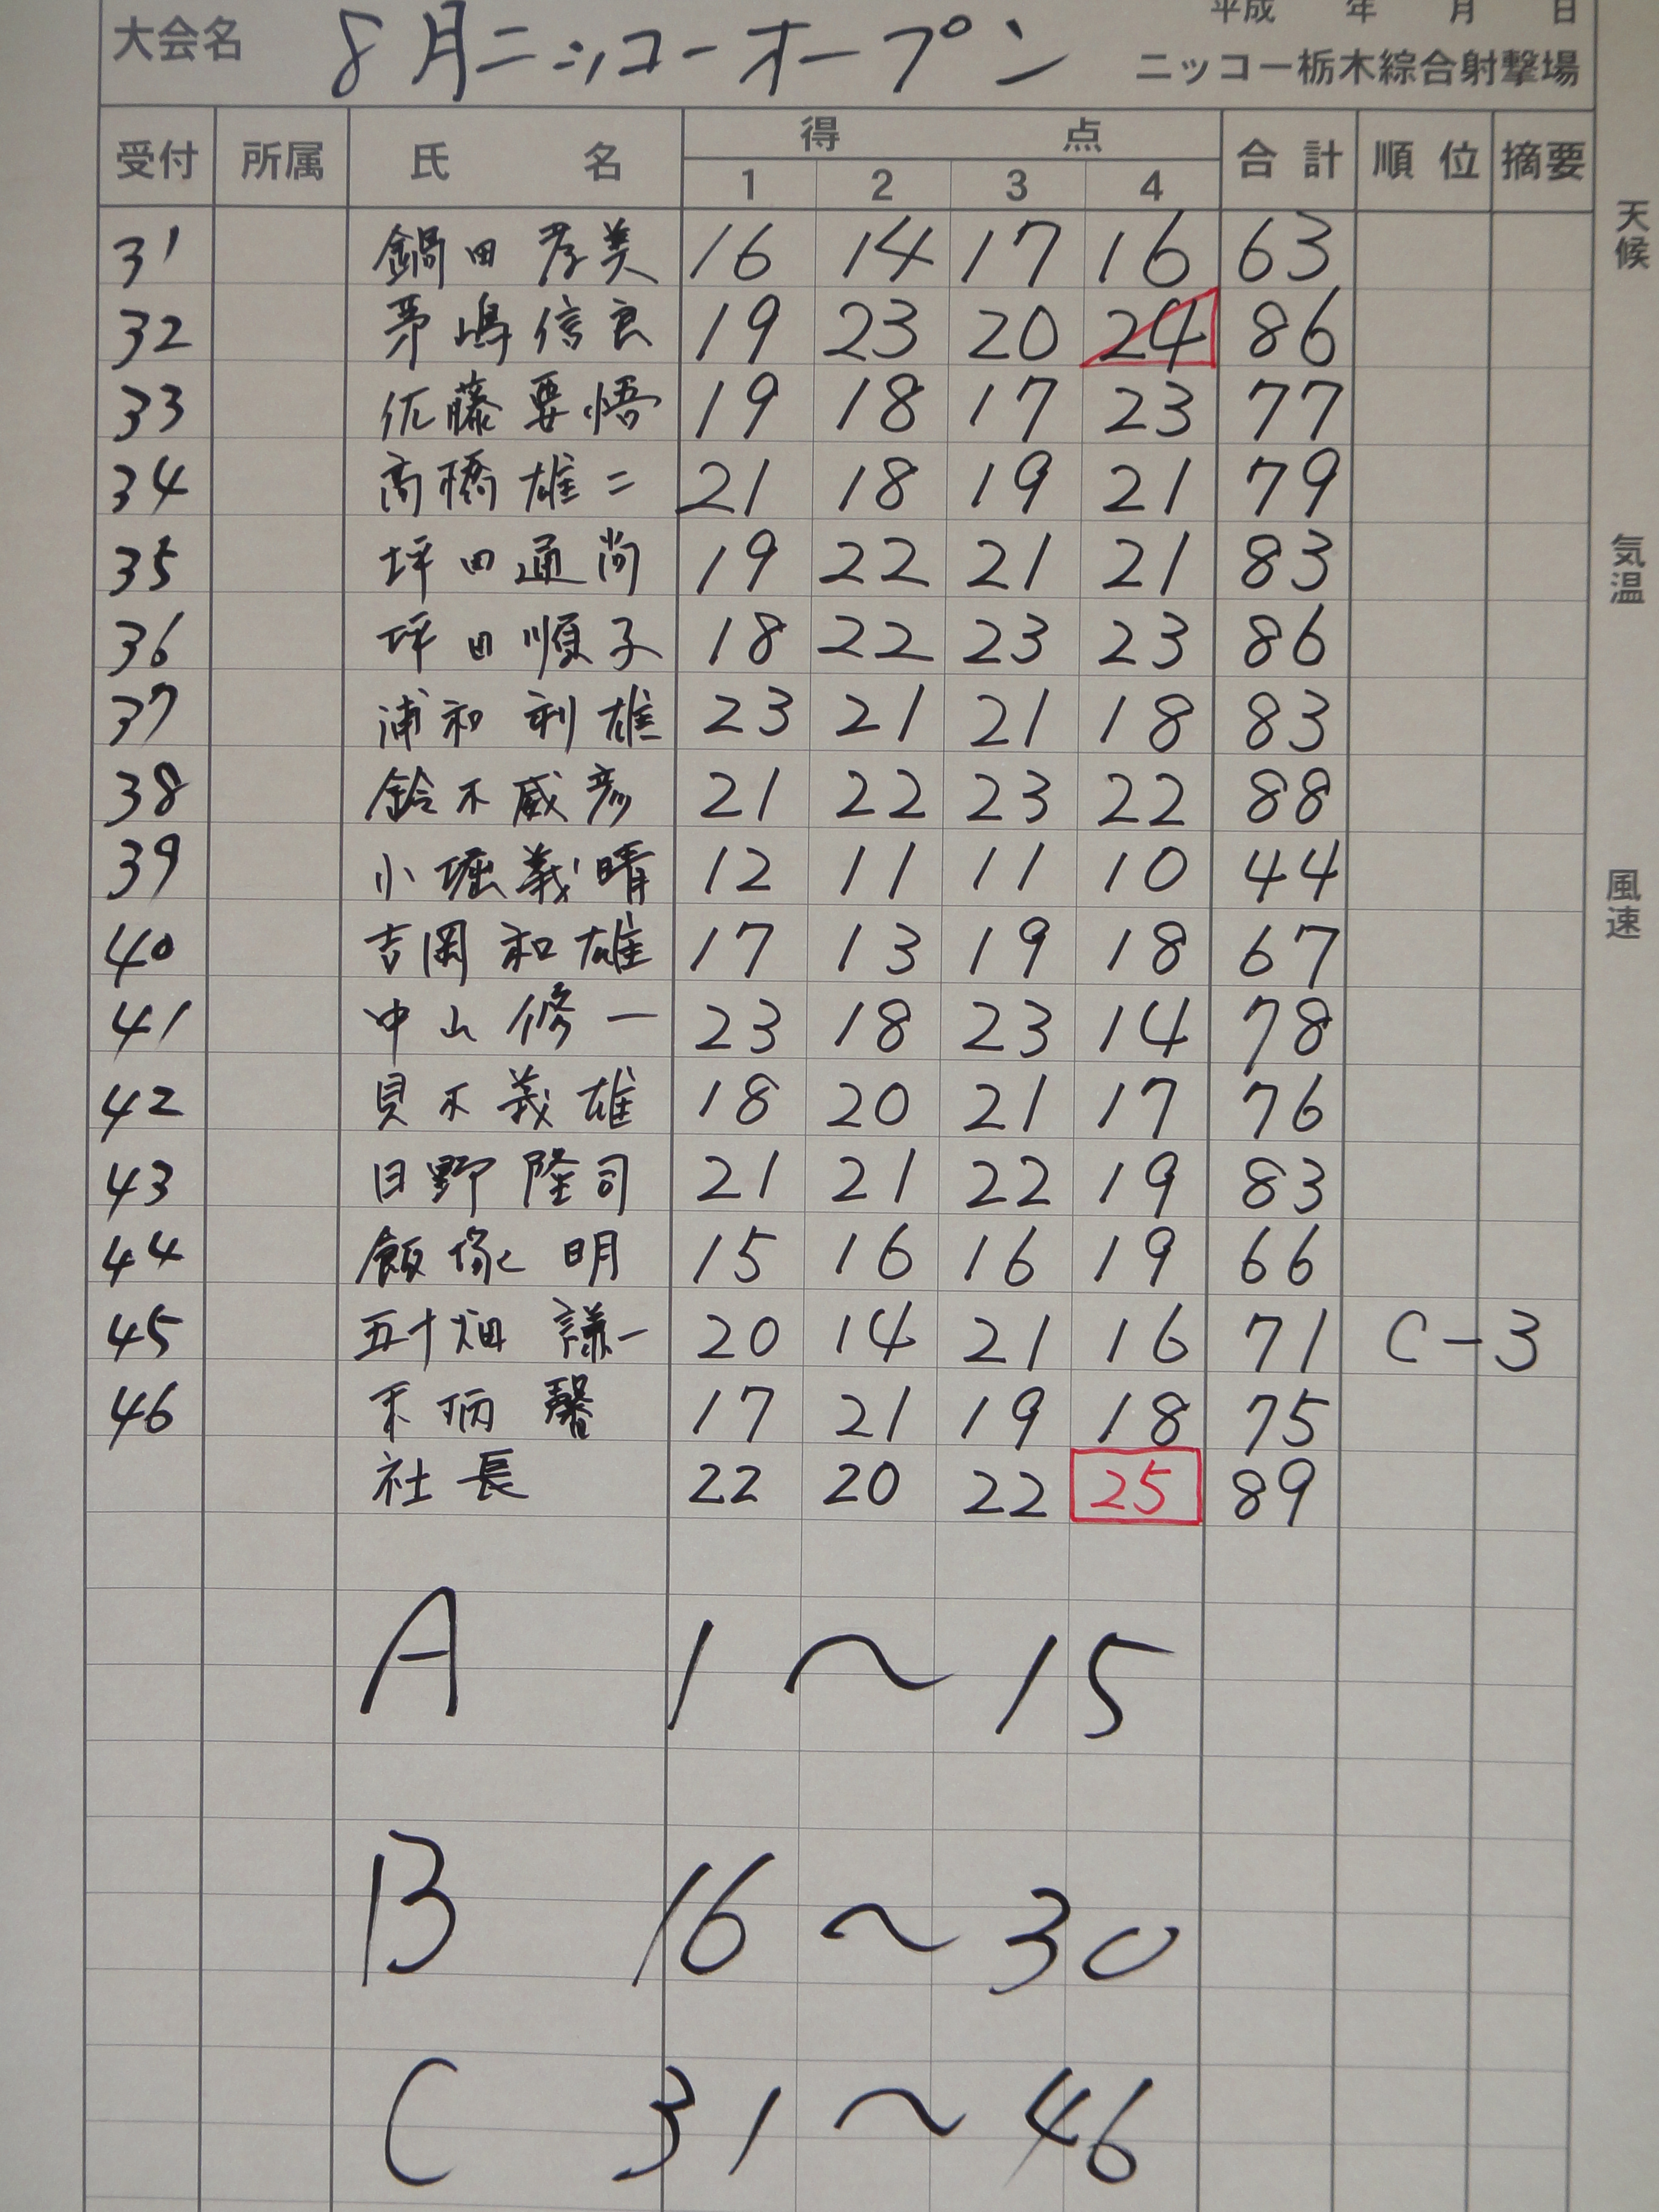 平成 年 月 日
大会名 8月ニッコーオープン ニッコー栃木綜合射撃場
受付 所属 氏 名 得 点 合計 順位 摘要
1 2 3 4
31 鍋田孝美 16 14 17 16 63
32 茅嶋信良 19 23 20 24 86
33 佐藤要悟 19 18 17 23 77
34 高橋雄二 21 18 19 21 79
35 坪田通尚 19 22 21 21 83
36 坪田順子 18 22 23 23 86
37 浦和利雄 23 21 21 18 83
38 鈴木威彦 21 22 23 22 88
39 小堀義晴 12 11 11 10 44
40 吉岡和雄 17 13 19 18 67
41 中山修一 23 18 23 14 78
42 貝木義雄 18 20 21 17 76
43 日野隆司 21 21 22 19 83
44 飯塚明 15 16 16 19 66
45 五十畑謙一 20 14 21 16 71 C-3
46 馨 17 21 19 18 75
社長 22 20 22 25 89
A 1〜15
B 16〜30
C 31〜46
天候
気温
風速